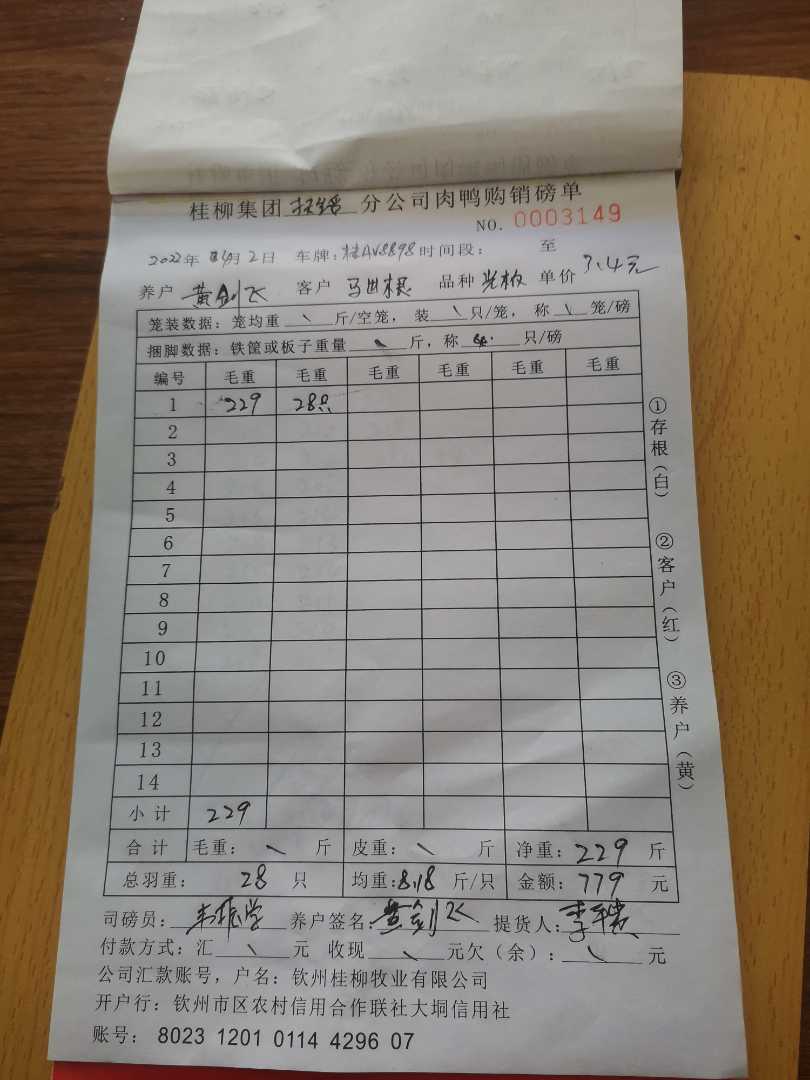 桂柳集团 分公司肉鸭购销磅单
NO. 0003149
2022年 4月2日 车牌:桂AV8898 时间段: 至
养户 黄剑飞 客户 马世根 品种 光板 单价 3.4元
笼装数据: 笼均重 \ 斤/空笼, 装 \ 只/笼, 称 \ 笼/磅
捆脚数据: 铁筐或板子重量 \ 斤, 称 只/磅
编号 毛重 毛重 毛重 毛重 毛重 毛重
1 229 28只
2
3
4
5
6
7
8
9
10
11
12
13
14
小计 229
合计 毛重: \ 斤 皮重: \ 斤 净重: 229 斤
总羽重: 28 只 均重: 8.18 斤/只 金额: 779 元
司磅员: 养户签名: 黄剑飞 提货人:
付款方式: 汇 \ 元 收现 \ 元欠(余): \ 元
公司汇款账号, 户名: 钦州桂柳牧业有限公司
开户行: 钦州市区农村信用合作联社大垌信用社
账号: 8023 1201 0114 4296 07
①存根(白)
②客户(红)
③养户(黄)